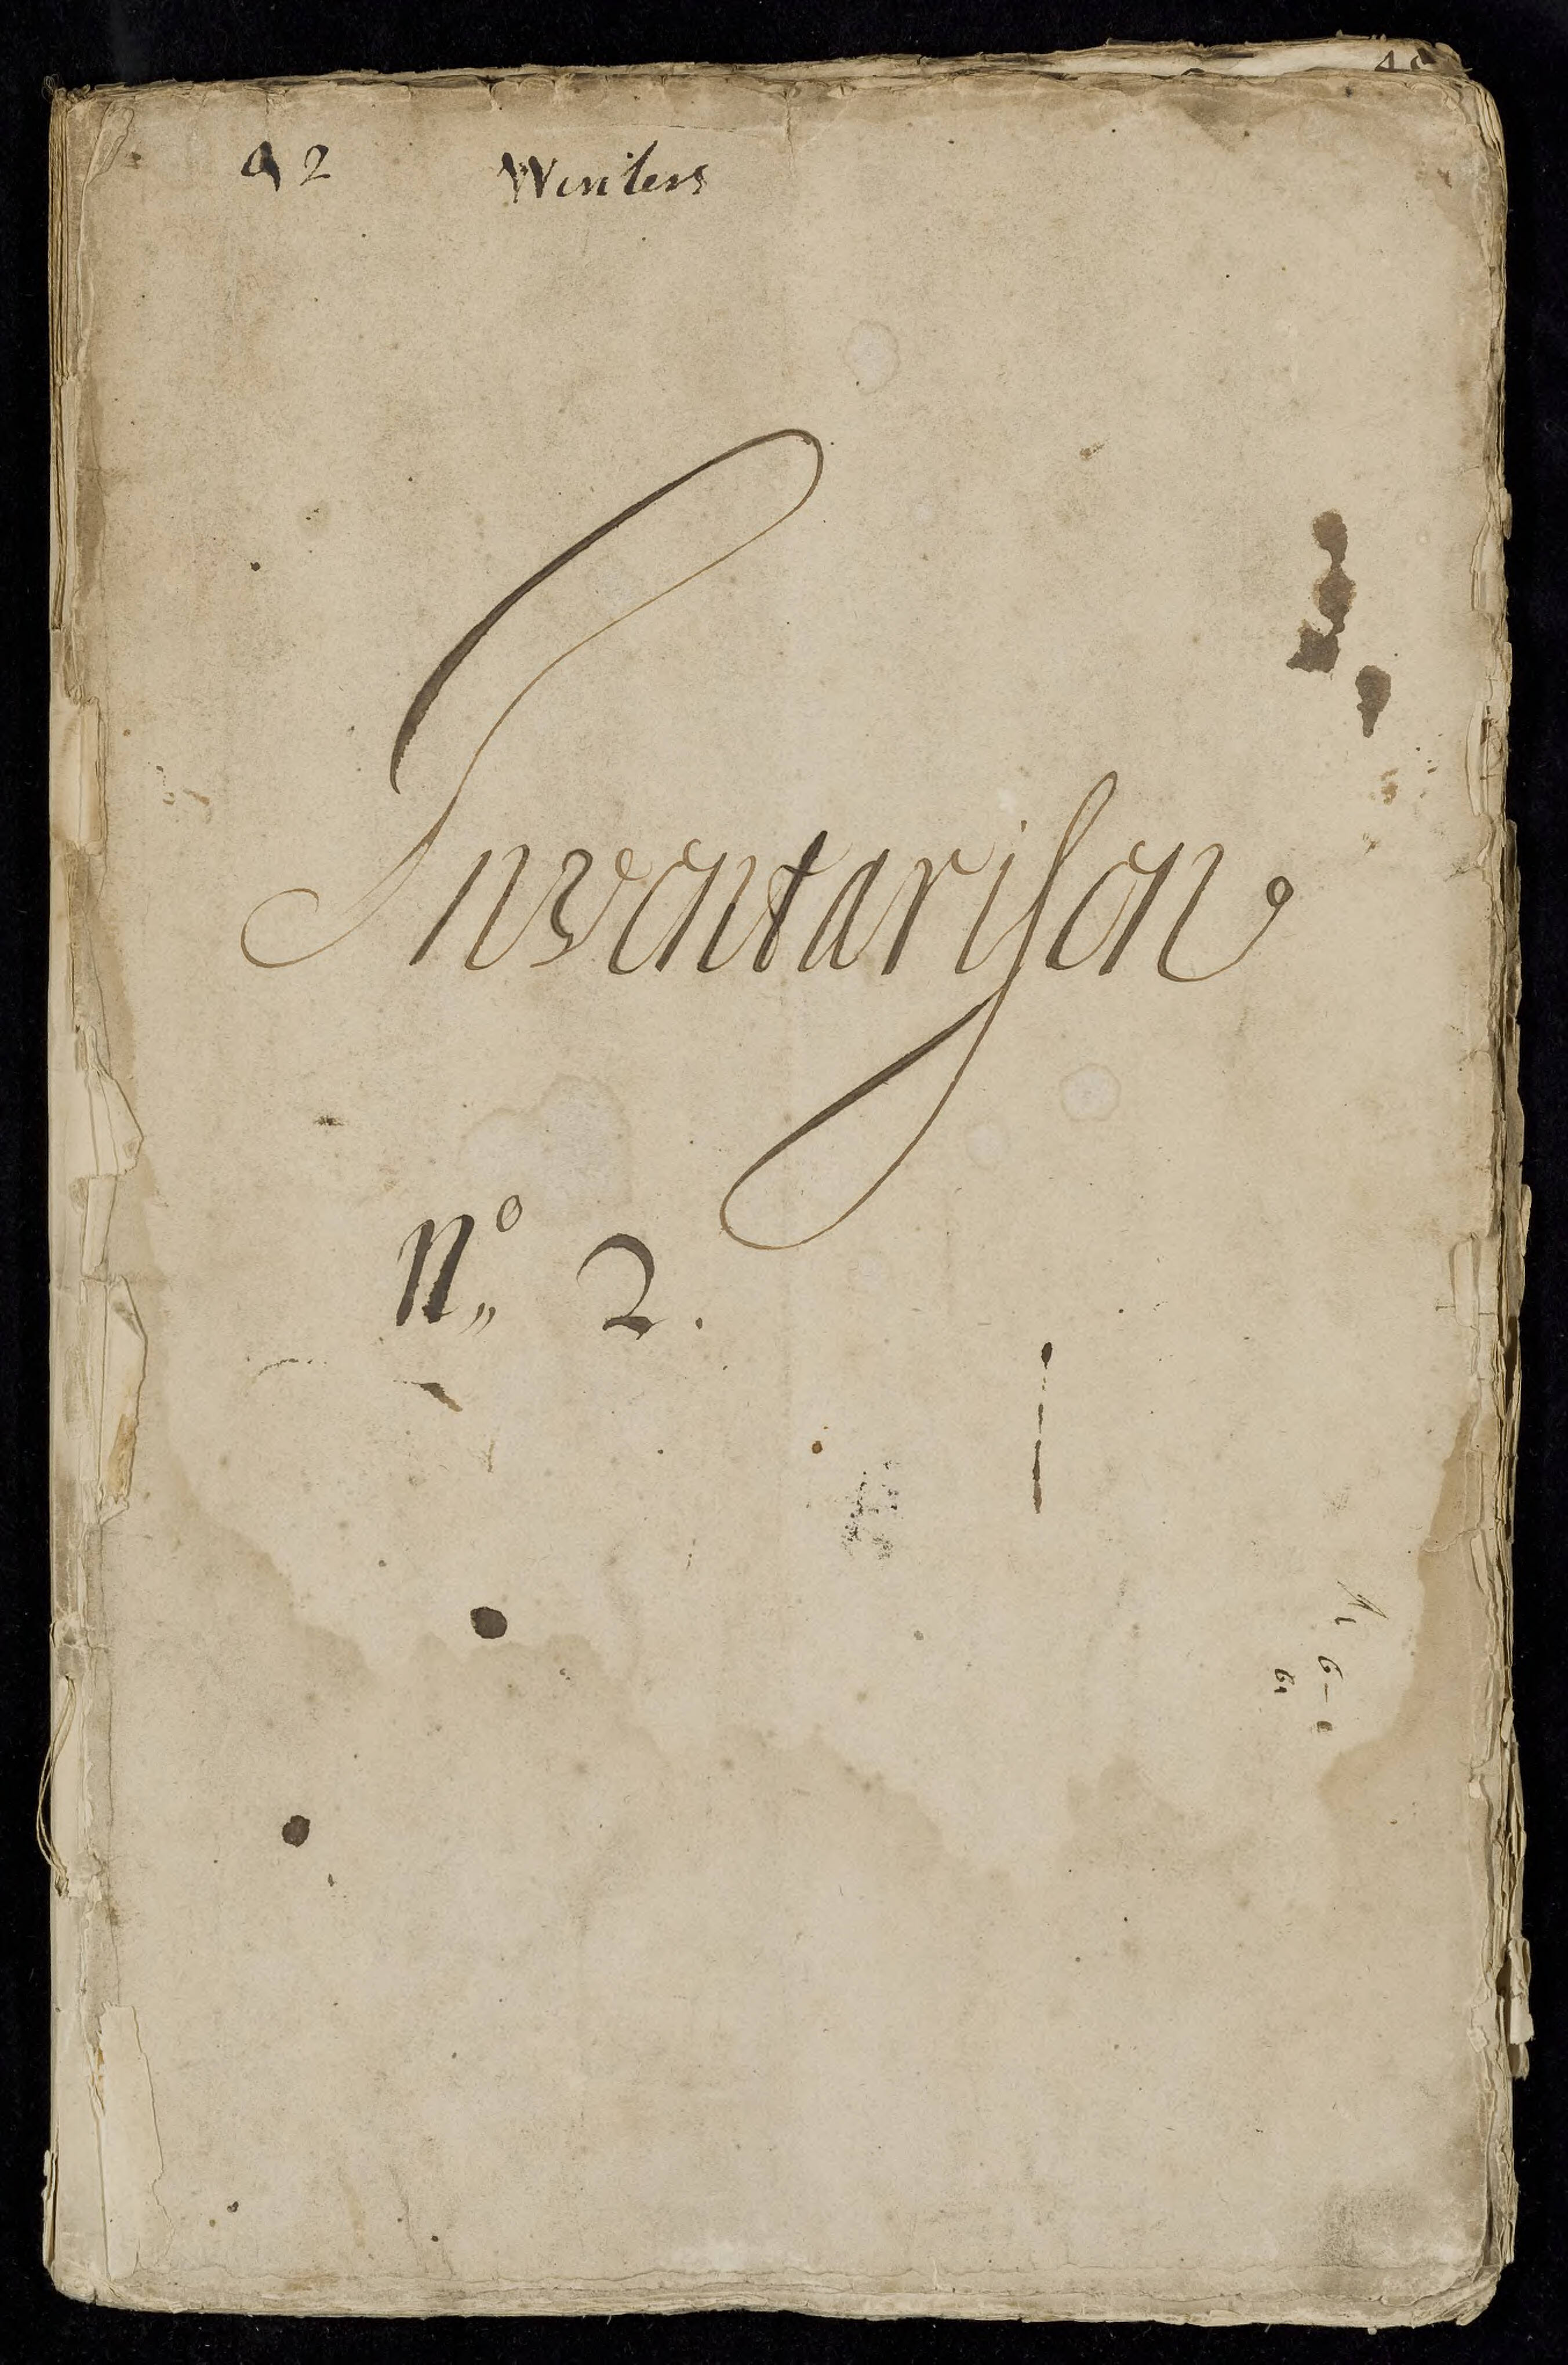 92 Winters
Inventarisen
No 2.